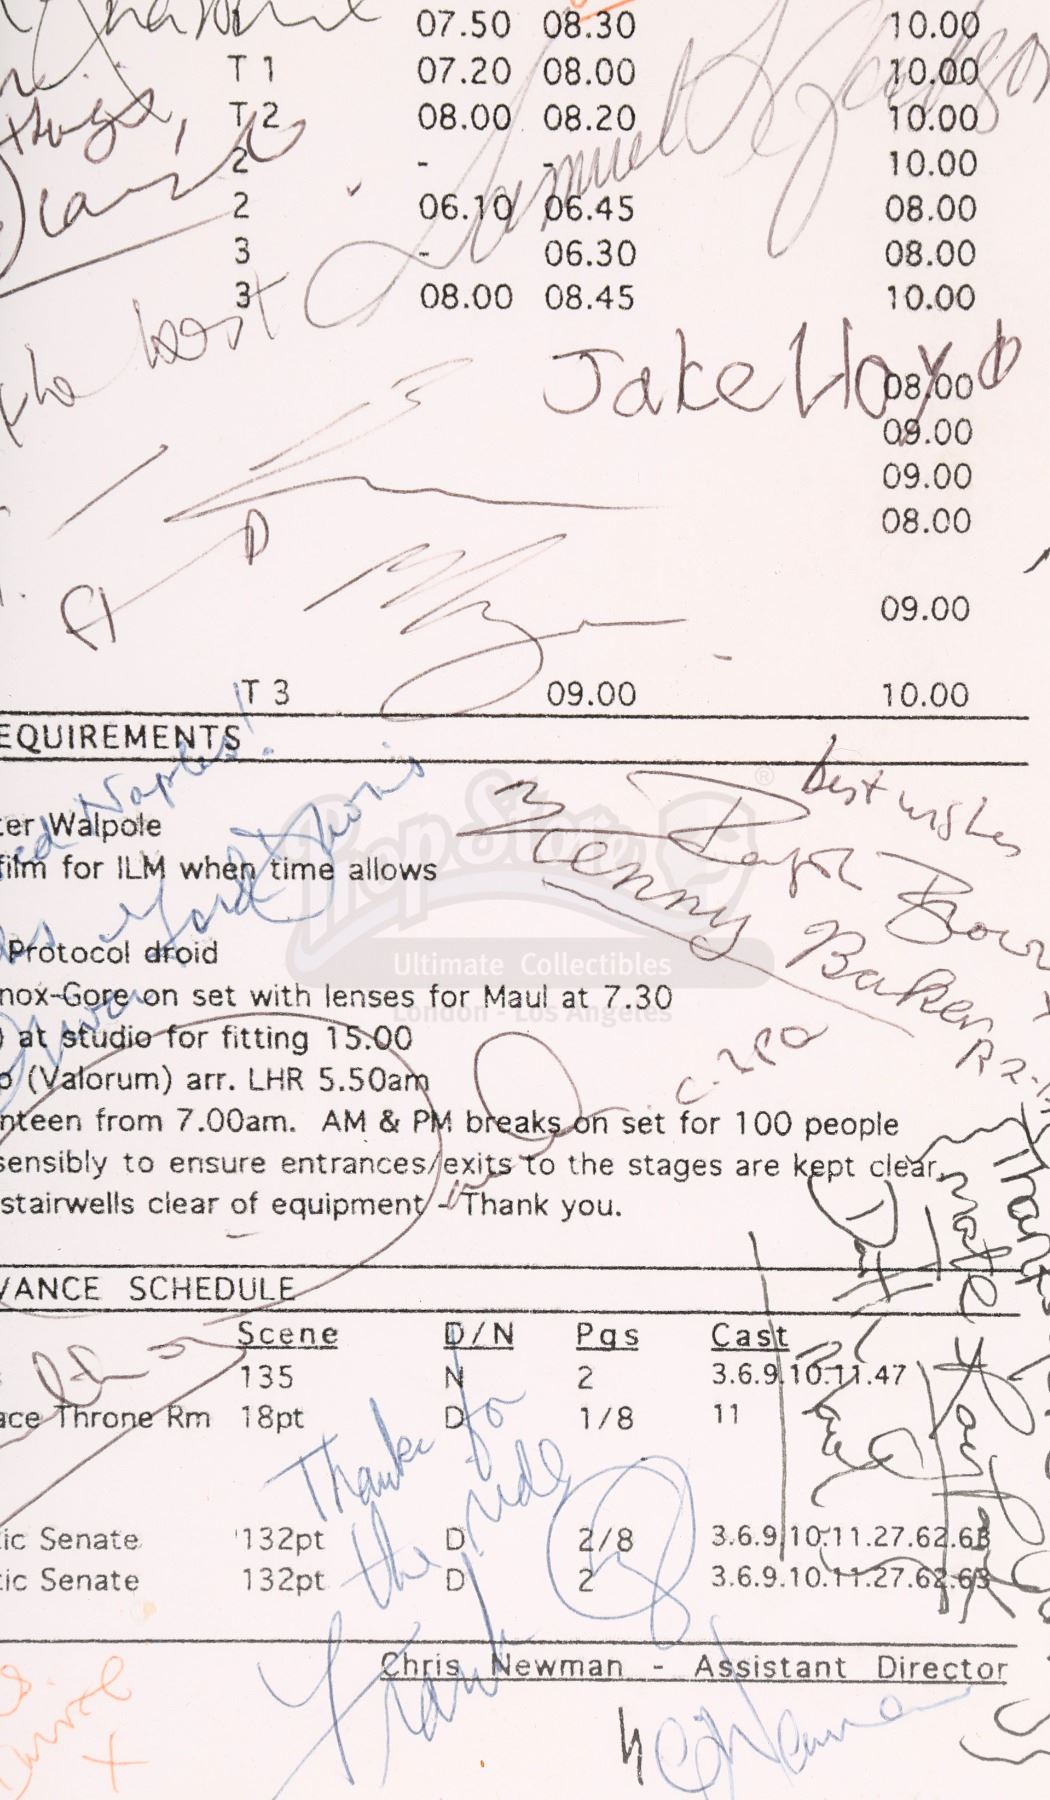 07.50 08.30 10.00
T 1 07.20 08.00 10.00
T 2 08.00 08.20 10.00
2 - - 10.00
2 06.10 06.45 08.00
3 - 06.30 08.00
3 08.00 08.45 10.00
Samuel L Jackson
best
Jake Lloyd
08.00
09.00
09.00
08.00
09.00
T 3 09.00 10.00
EQUIREMENTS
Naples!
best wishes
ter Walpole
film for ILM when time allows
PropStore
®
Ralph Brown
Kenny Baker R2-
Protocol droid
Ultimate Collectibles
nox-Gore on set with lenses for Maul at 7.30
London - Los Angeles
) at studio for fitting 15.00
C-3PO
p (Valorum) arr. LHR 5.50am
nteen from 7.00am. AM & PM breaks on set for 100 people
sensibly to ensure entrances/exits to the stages are kept clear.
stairwells clear of equipment - Thank you.
Thanks
mate
VANCE SCHEDULE
Scene D/N Pgs Cast
135 N 2 3.6.9.10.11.47
ace Throne Rm 18pt D 1/8 11
Thanks for
the ride
Frank
tic Senate 132pt D 2/8 3.6.9.10.11.27.62.63
tic Senate 132pt D 2 3.6.9.10.11.27.62.63
Chris Newman - Assistant Director
C Newman
x